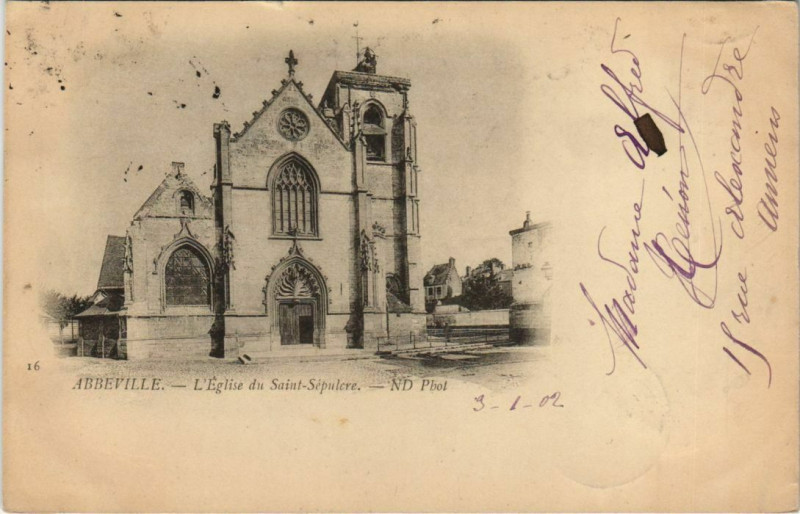 16
ABBEVILLE. — L'Église du Saint-Sépulcre. — ND Phot
3-1-02
Madame Alfred
Hénon
15 rue Alexandre
Amiens